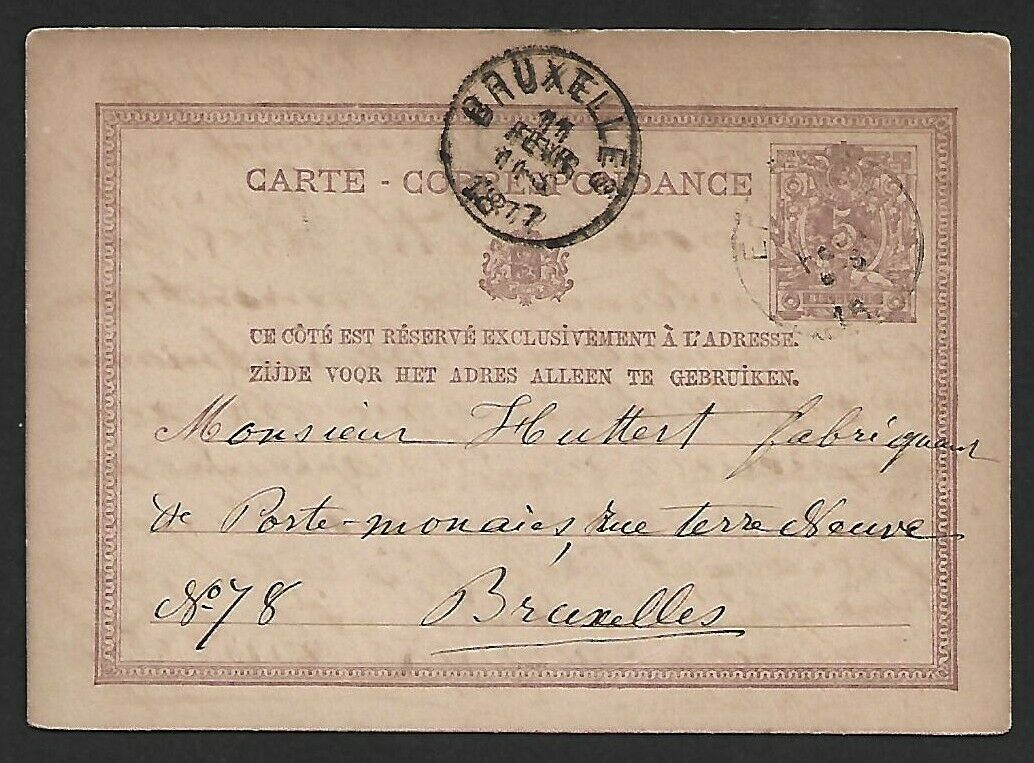 BRUXELLES
11
FEVR
1877
CARTE - CORRESPONDANCE
5
CE CÔTÉ EST RÉSERVÉ EXCLUSIVEMENT À L'ADRESSE.
ZIJDE VOOR HET ADRES ALLEEN TE GEBRUIKEN.
Monsieur Huttert fabriquant
de Porte-monaies, rue terre Neuve
No. 78 Bruxelles